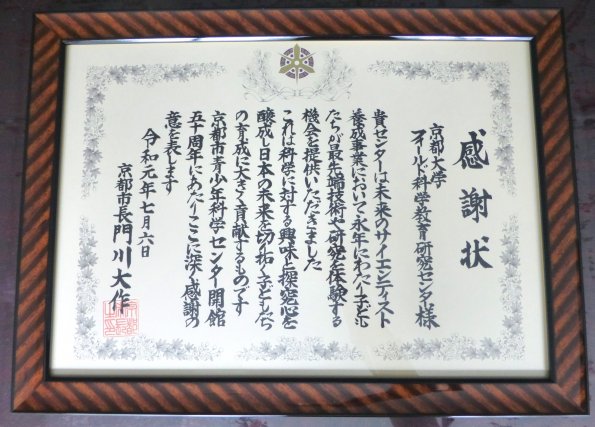 感謝状
京都大学
フィールド科学教育研究センター様
貴センターは未来のサイエンティスト
養成事業において永年にわたり子ども
たちが最先端技術や研究を体験する
機会を提供いただきました
これは科学に対する興味と探究心を
醸成し日本の未来を切り拓く子どもたち
の育成に大きく貢献するものです
京都市青少年科学センター開館
五十周年にあたりここに深く感謝の
意を表します
令和元年七月六日
京都市長門川大作